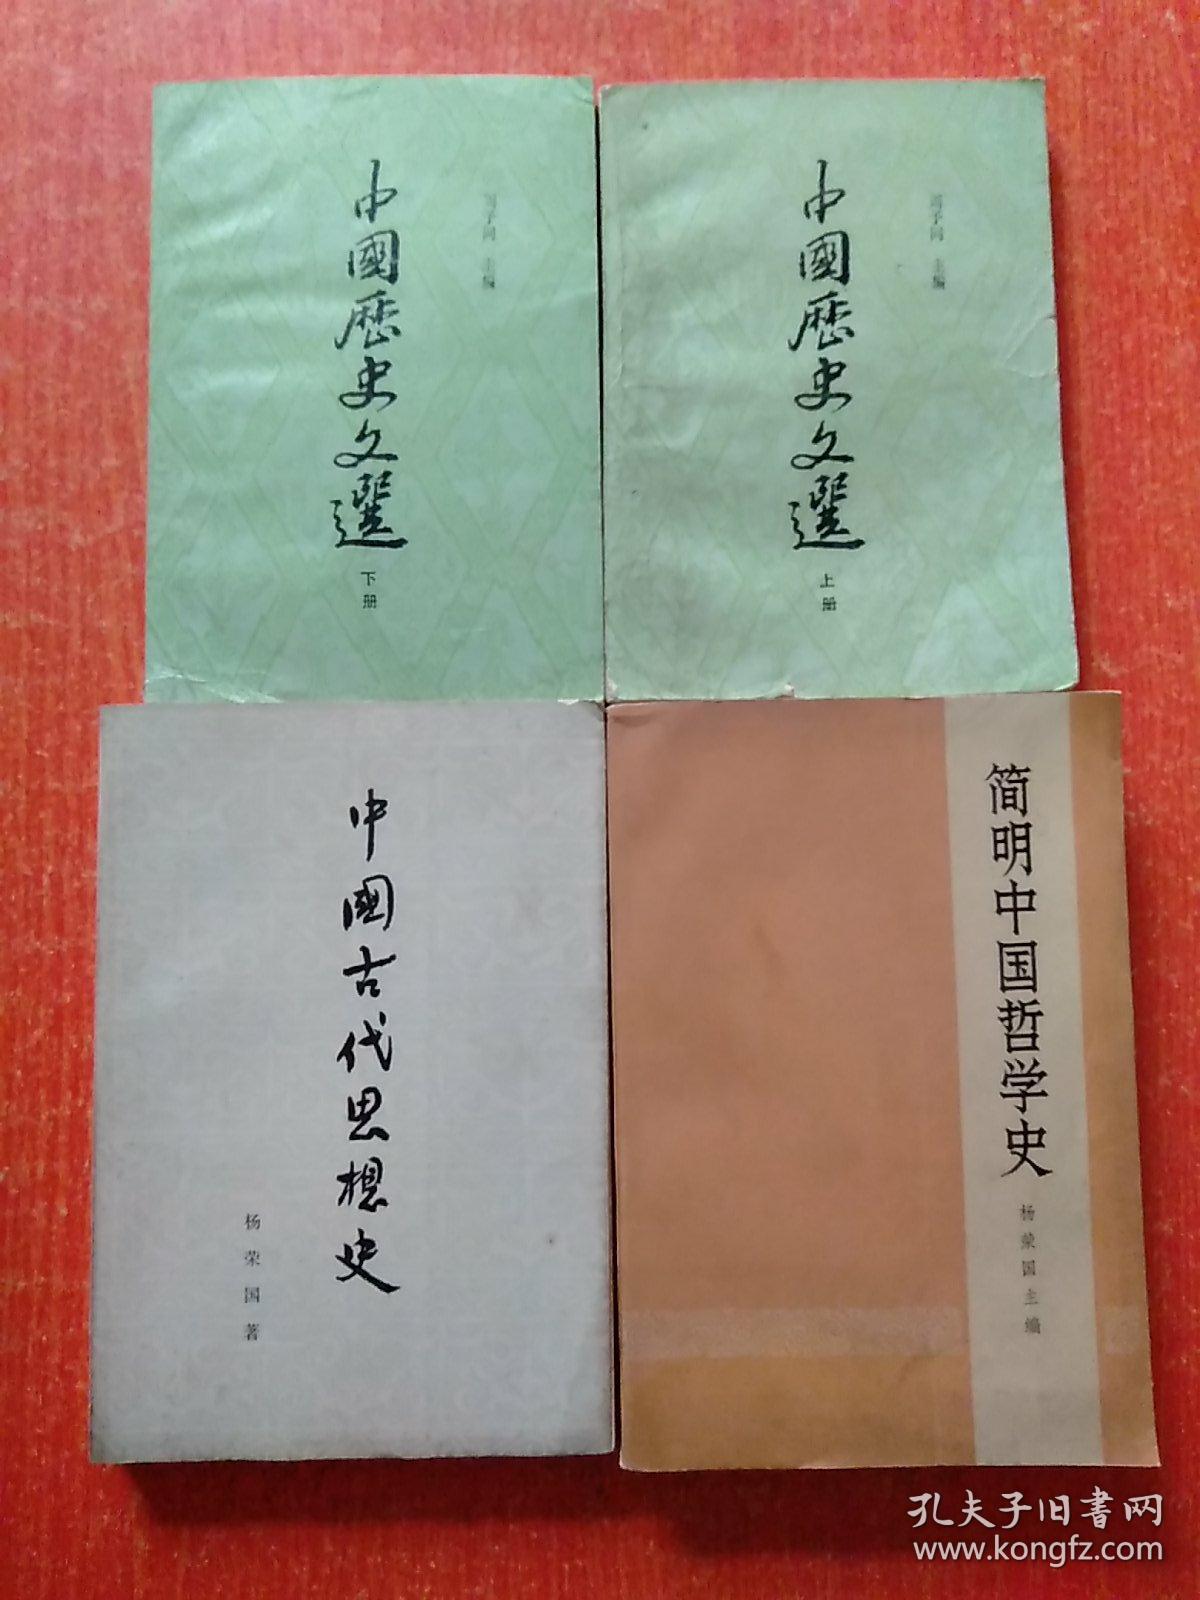 中國歷史文選
下册
主编
中國歷史文選
上册
主编
中國古代思想史
杨荣国著
简明中国哲学史
杨荣国主编
孔夫子旧书网
www.kongfz.com